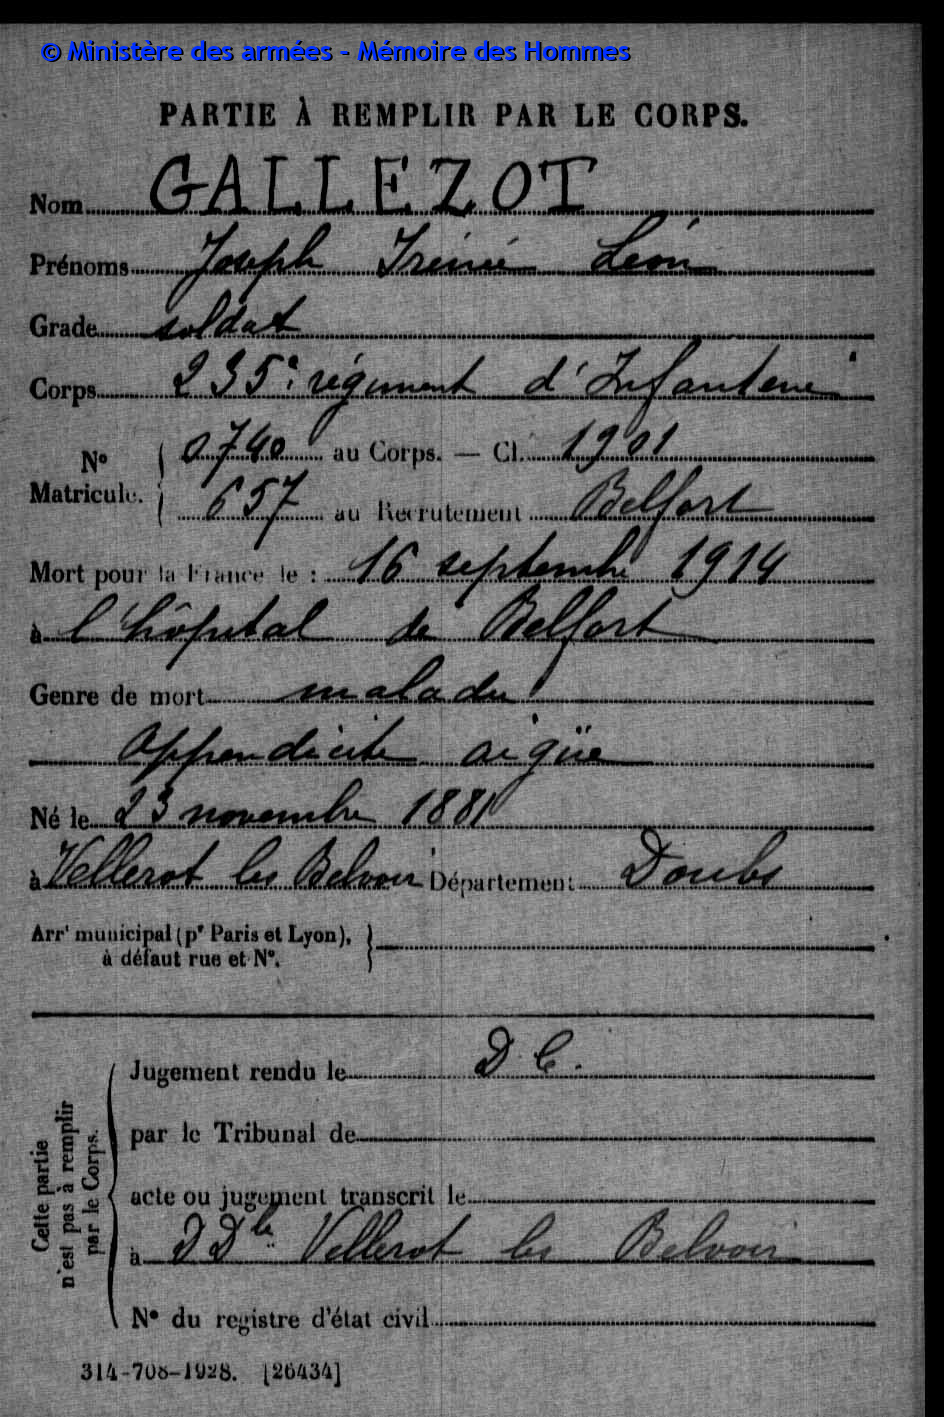 © Ministère des armées - Mémoire des Hommes
PARTIE À REMPLIR PAR LE CORPS.
Nom GALLEZOT
Prénoms Joseph Irénée Léon
Grade soldat
Corps 235e régiment d'Infanterie
N° Matricule. { 0740 au Corps. — Cl. 1901
657 au Recrutement Belfort
Mort pour la France le : 16 septembre 1914
à l'hôpital de Belfort
Genre de mort maladie
Appendicite aigüe
Né le 23 novembre 1881
à Vellerot les Belvoir Département Doubs
Arrt municipal (pr Paris et Lyon), }
à défaut rue et N°.
Cette partie n'est pas à remplir par le Corps.
Jugement rendu le D C.
par le Tribunal de
acte ou jugement transcrit le
à D Dle Vellerot les Belvoir
N° du registre d'état civil
314-708-1928. [26434]